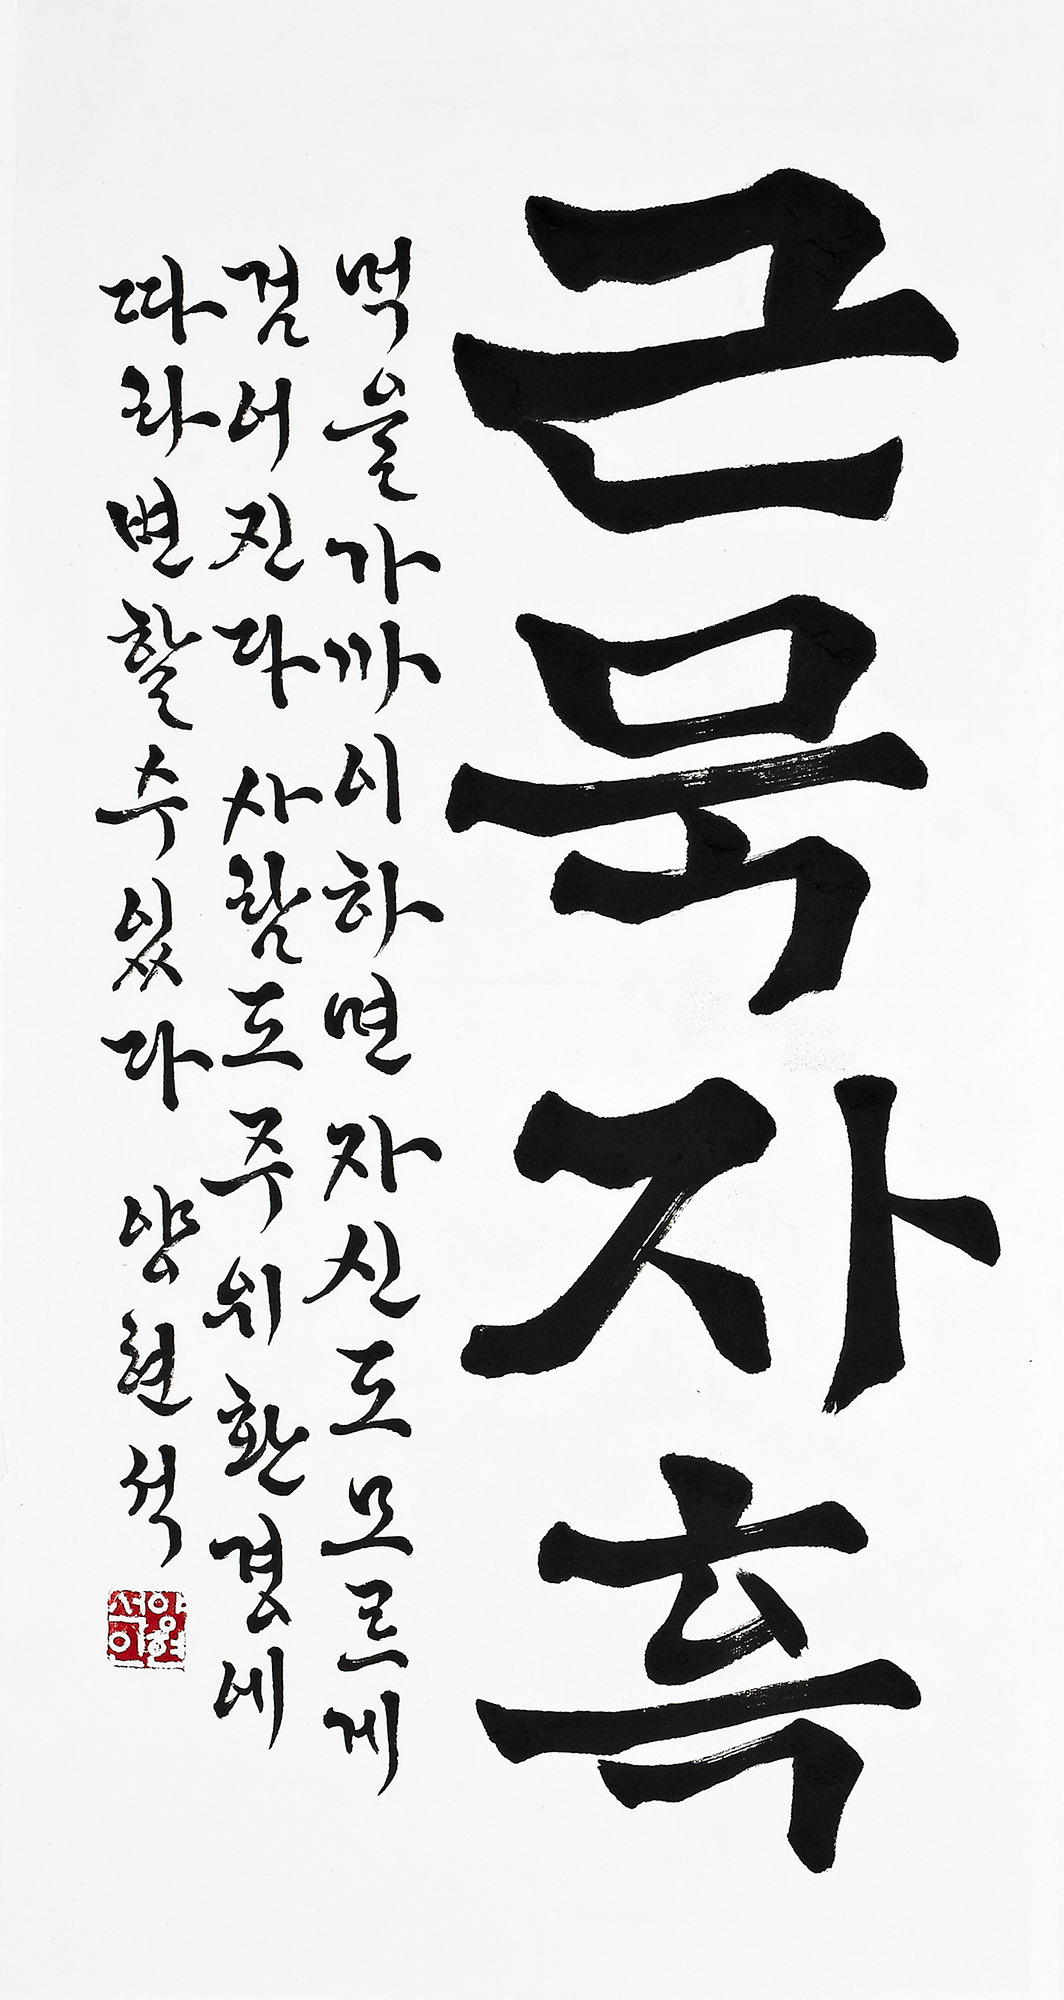 근묵자흑
먹을가까이하면 자신도모르게
검어진다 사람도주위환경에
따라변할수있다 양현석